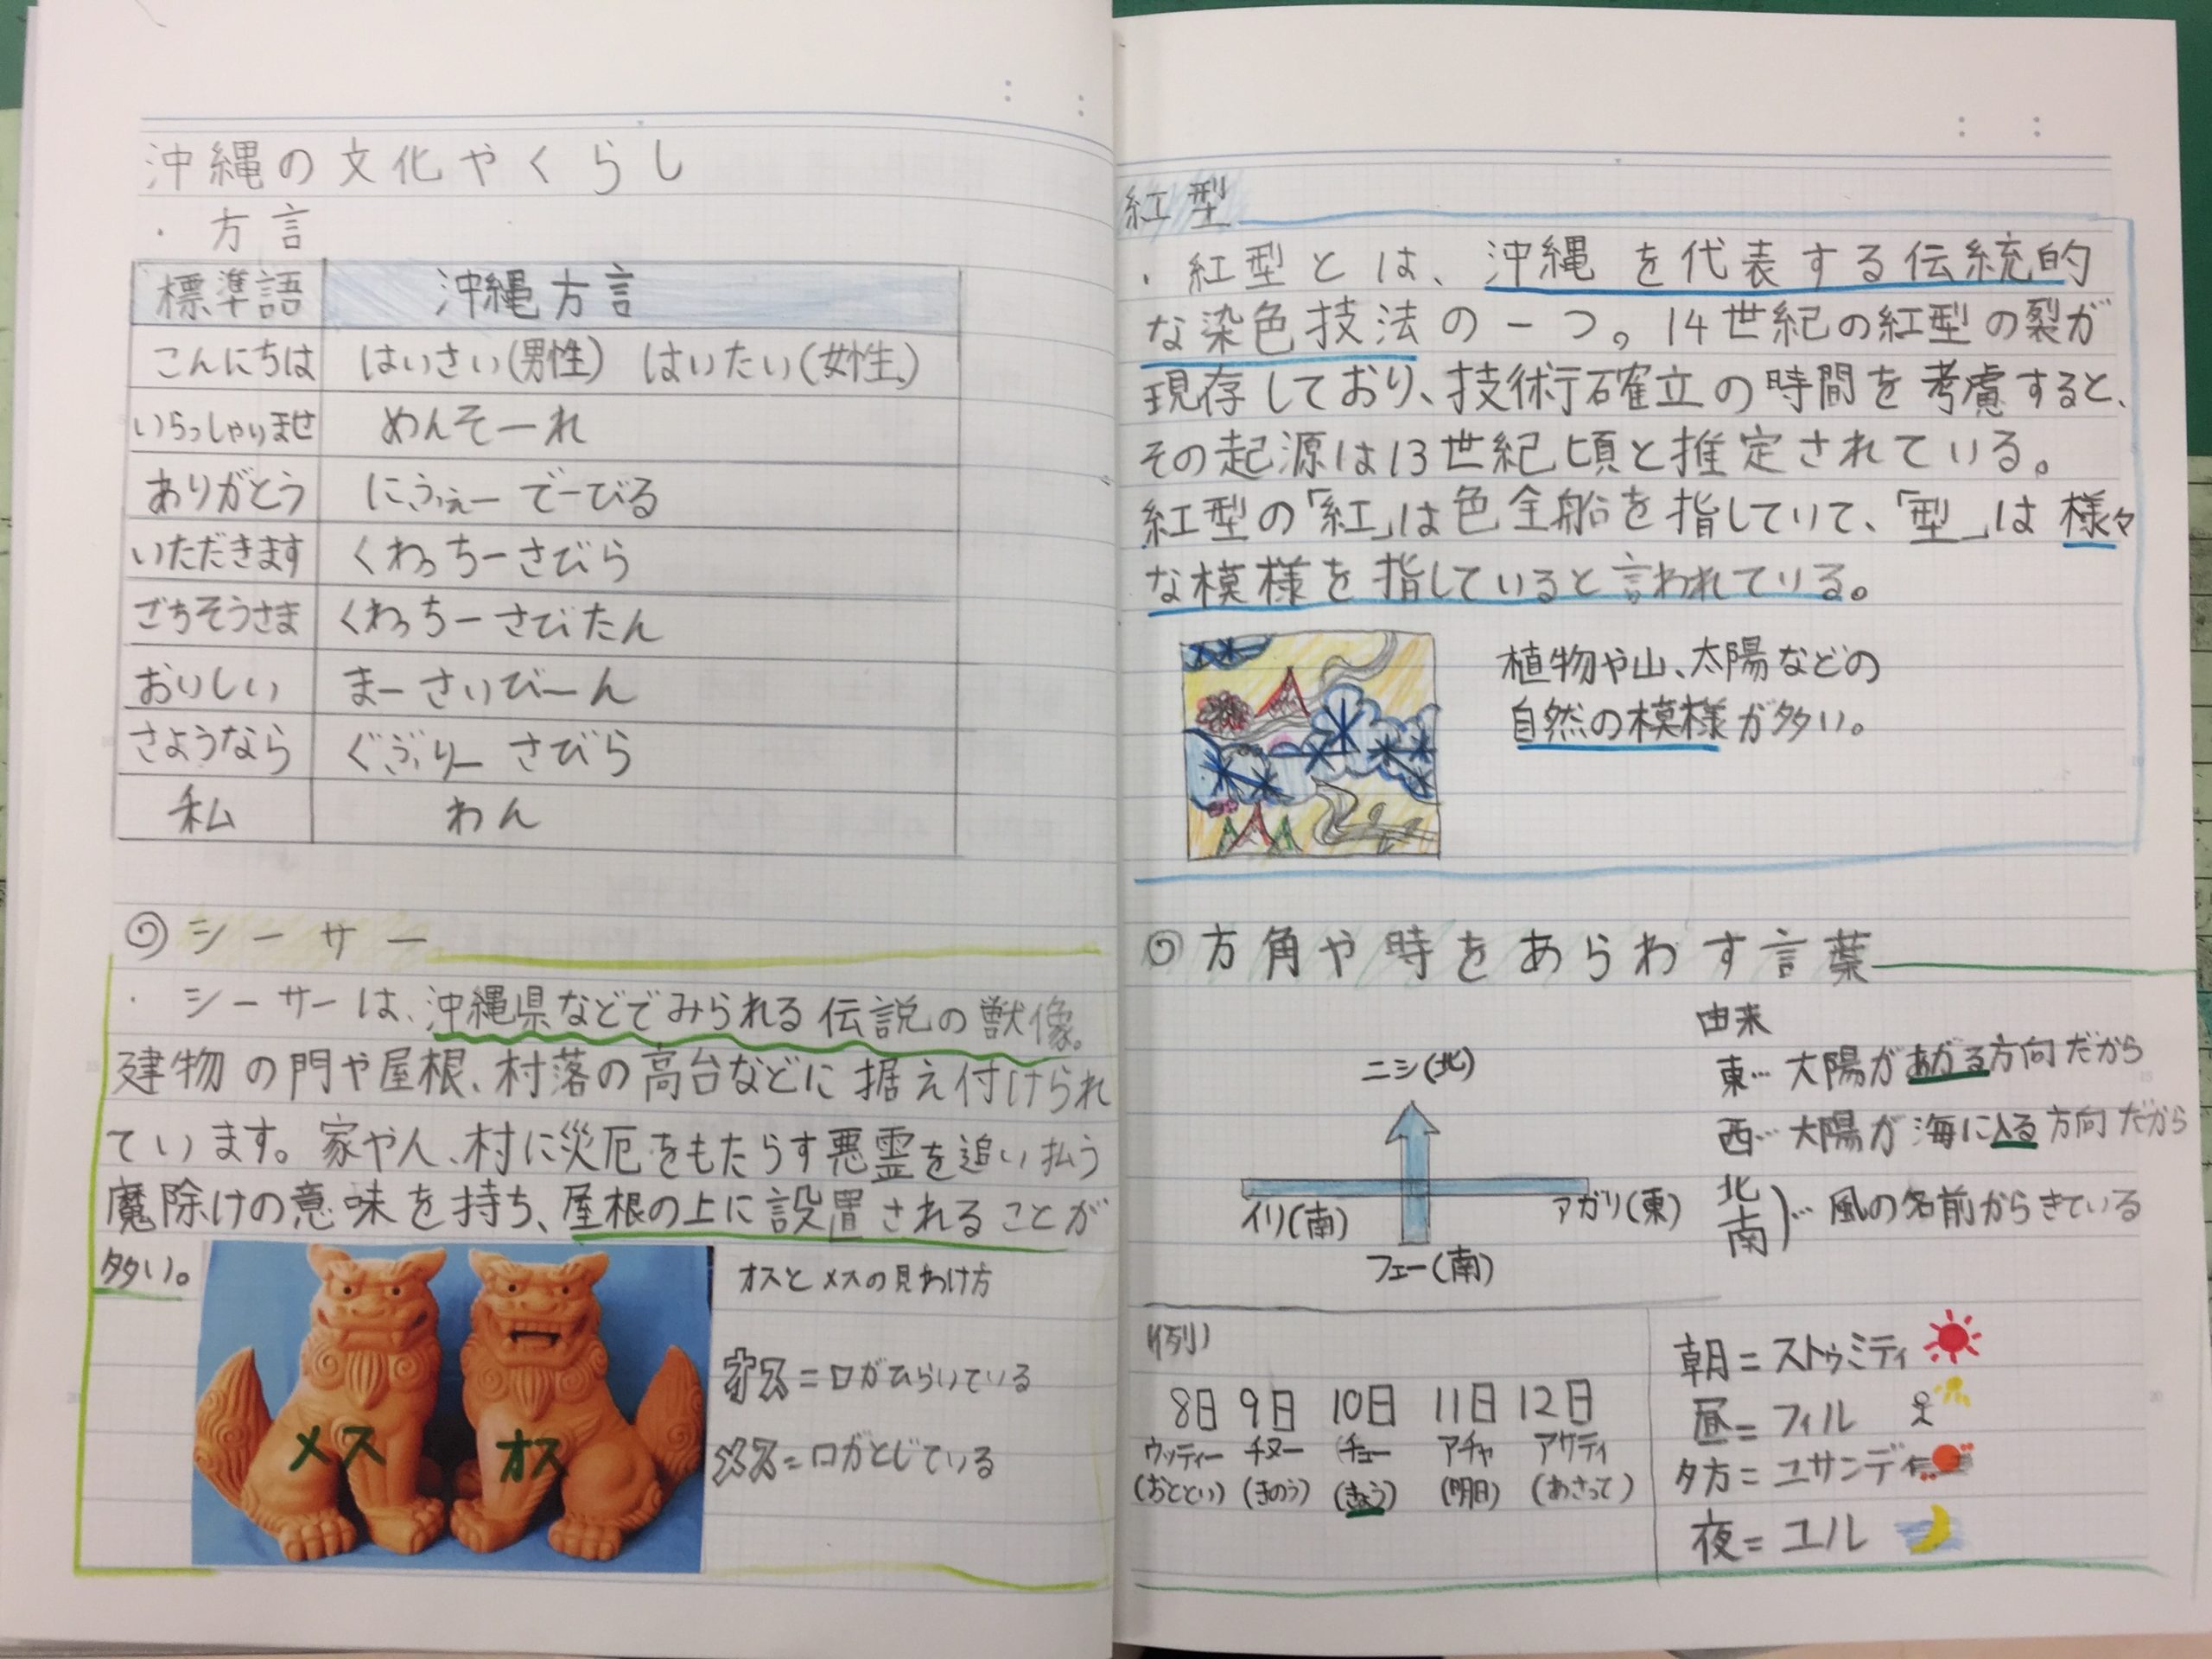 沖縄の文化やくらし
・方言
標準語 沖縄方言
こんにちは はいさい(男性) はいたい(女性)
いらっしゃいませ めんそーれ
ありがとう にふぇーでーびる
いただきます くわっちーさびら
ごちそうさま くわっちーさびたん
おいしい まーさいびーん
さようなら ぐぶりーさびら
私 わん
シーサー
・シーサーは、沖縄県などでみられる伝説の獣像。
建物の門や屋根、村落の高台などに据え付けられ
ています。家や人、村に災厄をもたらす悪霊を追い払う
魔除けの意味を持ち、屋根の上に設置されることが
多い。
メス オス
オスとメスの見わけ方
オス=口がひらいている
メス=口がとじている
紅型
・紅型とは、沖縄を代表する伝統的
な染色技法の一つ。14世紀の紅型の裂が
現存しており、技術確立の時間を考慮すると、
その起源は13世紀頃と推定されている。
紅型の「紅」は色全船を指していて、「型」は様々
な模様を指していると言われている。
植物や山、太陽などの
自然の模様が多い。
方角や時をあらわす言葉
ニシ(北)
イリ(南) アガリ(東)
フェー(南)
由来
東…太陽があがる方向だから
西…太陽が海に入る方向だから
北
南)…風の名前からきている
(例)
8日 9日 10日 11日 12日
ウッティー チヌー チュー アチャ アサティ
(おととい) (きのう) (きょう) (明日) (あさって)
朝=ストゥミティ
昼=フィル
夕方=ユサンディ
夜=ユル